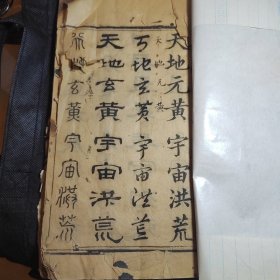 天地元黄宇宙洪荒
天地玄黄宇宙洪荒
天地玄黄宇宙洪荒
天地玄黄宇宙洪荒